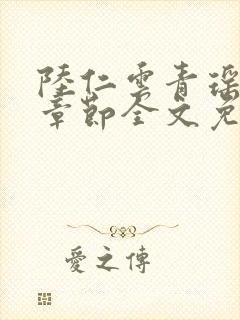 陸仁雲青瑶
章節全文免
愛之傳